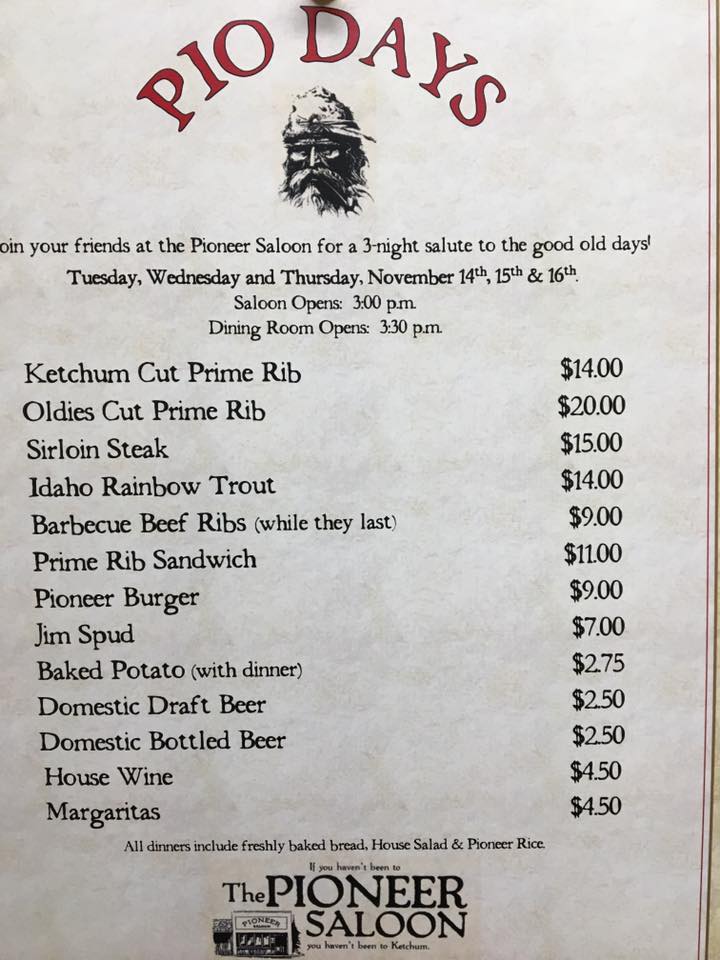 PIO DAYS
oin your friends at the Pioneer Saloon for a 3-night salute to the good old days!
Tuesday, Wednesday and Thursday, November 14th, 15th & 16th.
Saloon Opens: 3:00 p.m.
Dining Room Opens: 3:30 p.m.
Ketchum Cut Prime Rib $14.00
Oldies Cut Prime Rib $20.00
Sirloin Steak $15.00
Idaho Rainbow Trout $14.00
Barbecue Beef Ribs (while they last) $9.00
Prime Rib Sandwich $11.00
Pioneer Burger $9.00
Jim Spud $7.00
Baked Potato (with dinner) $2.75
Domestic Draft Beer $2.50
Domestic Bottled Beer $2.50
House Wine $4.50
Margaritas $4.50
All dinners include freshly baked bread, House Salad & Pioneer Rice.
If you haven't been to
The PIONEER
PIONEER
SALOON
SALOON
you haven't been to Ketchum.